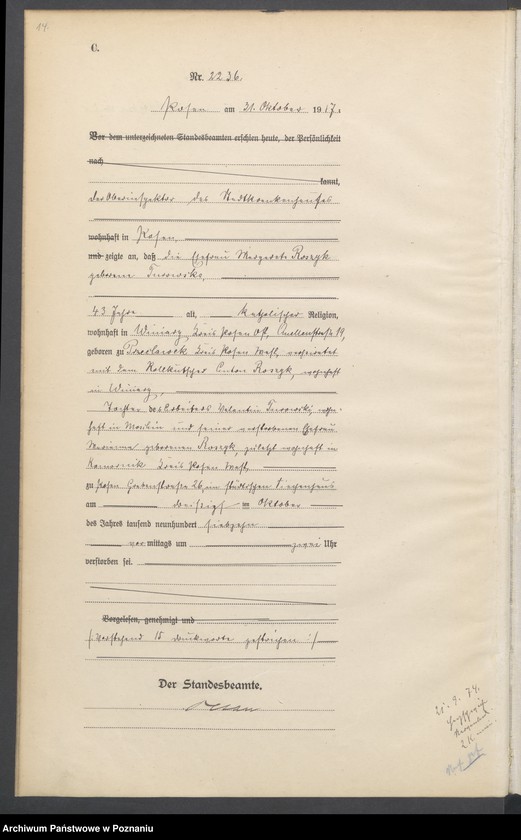 14
C.
Nr. 2236.
Posen am 31. Oktober 1917.
Vor dem unterzeichneten Standesbeamten erschien heute, der Persönlichkeit
nach
kannt,
der Oberinspektor des Stadtkrankenhauses
wohnhaft in Posen,
und zeigte an, daß die Ehefrau Margareta Roszyk
geborene Turowska,
43 Jahre alt, katholischer Religion,
wohnhaft in Winiary, Kreis Posen Ost,
geboren zu Kreis Posen West, verheiratet
mit dem Anton Roszyk, wohnhaft
in Winiary,
Tochter des Arbeiters Valentin Turowski, wohn-
haft in und seiner verstorbenen Ehefrau
Marianna geborenen Roszyk, zuletzt wohnhaft in
Komornik Kreis Posen West,
zu Posen Grabenstrasse 26, im städtischen Siechenhaus
am dreißigsten Oktober
des Jahres tausend neunhundert siebzehn
vormittags um zwei Uhr
verstorben sei.
Vorgelesen, genehmigt und
(: Vorstehend 15 Druckworte gestrichen :)
Der Standesbeamte.
Archiwum Państwowe w Poznaniu